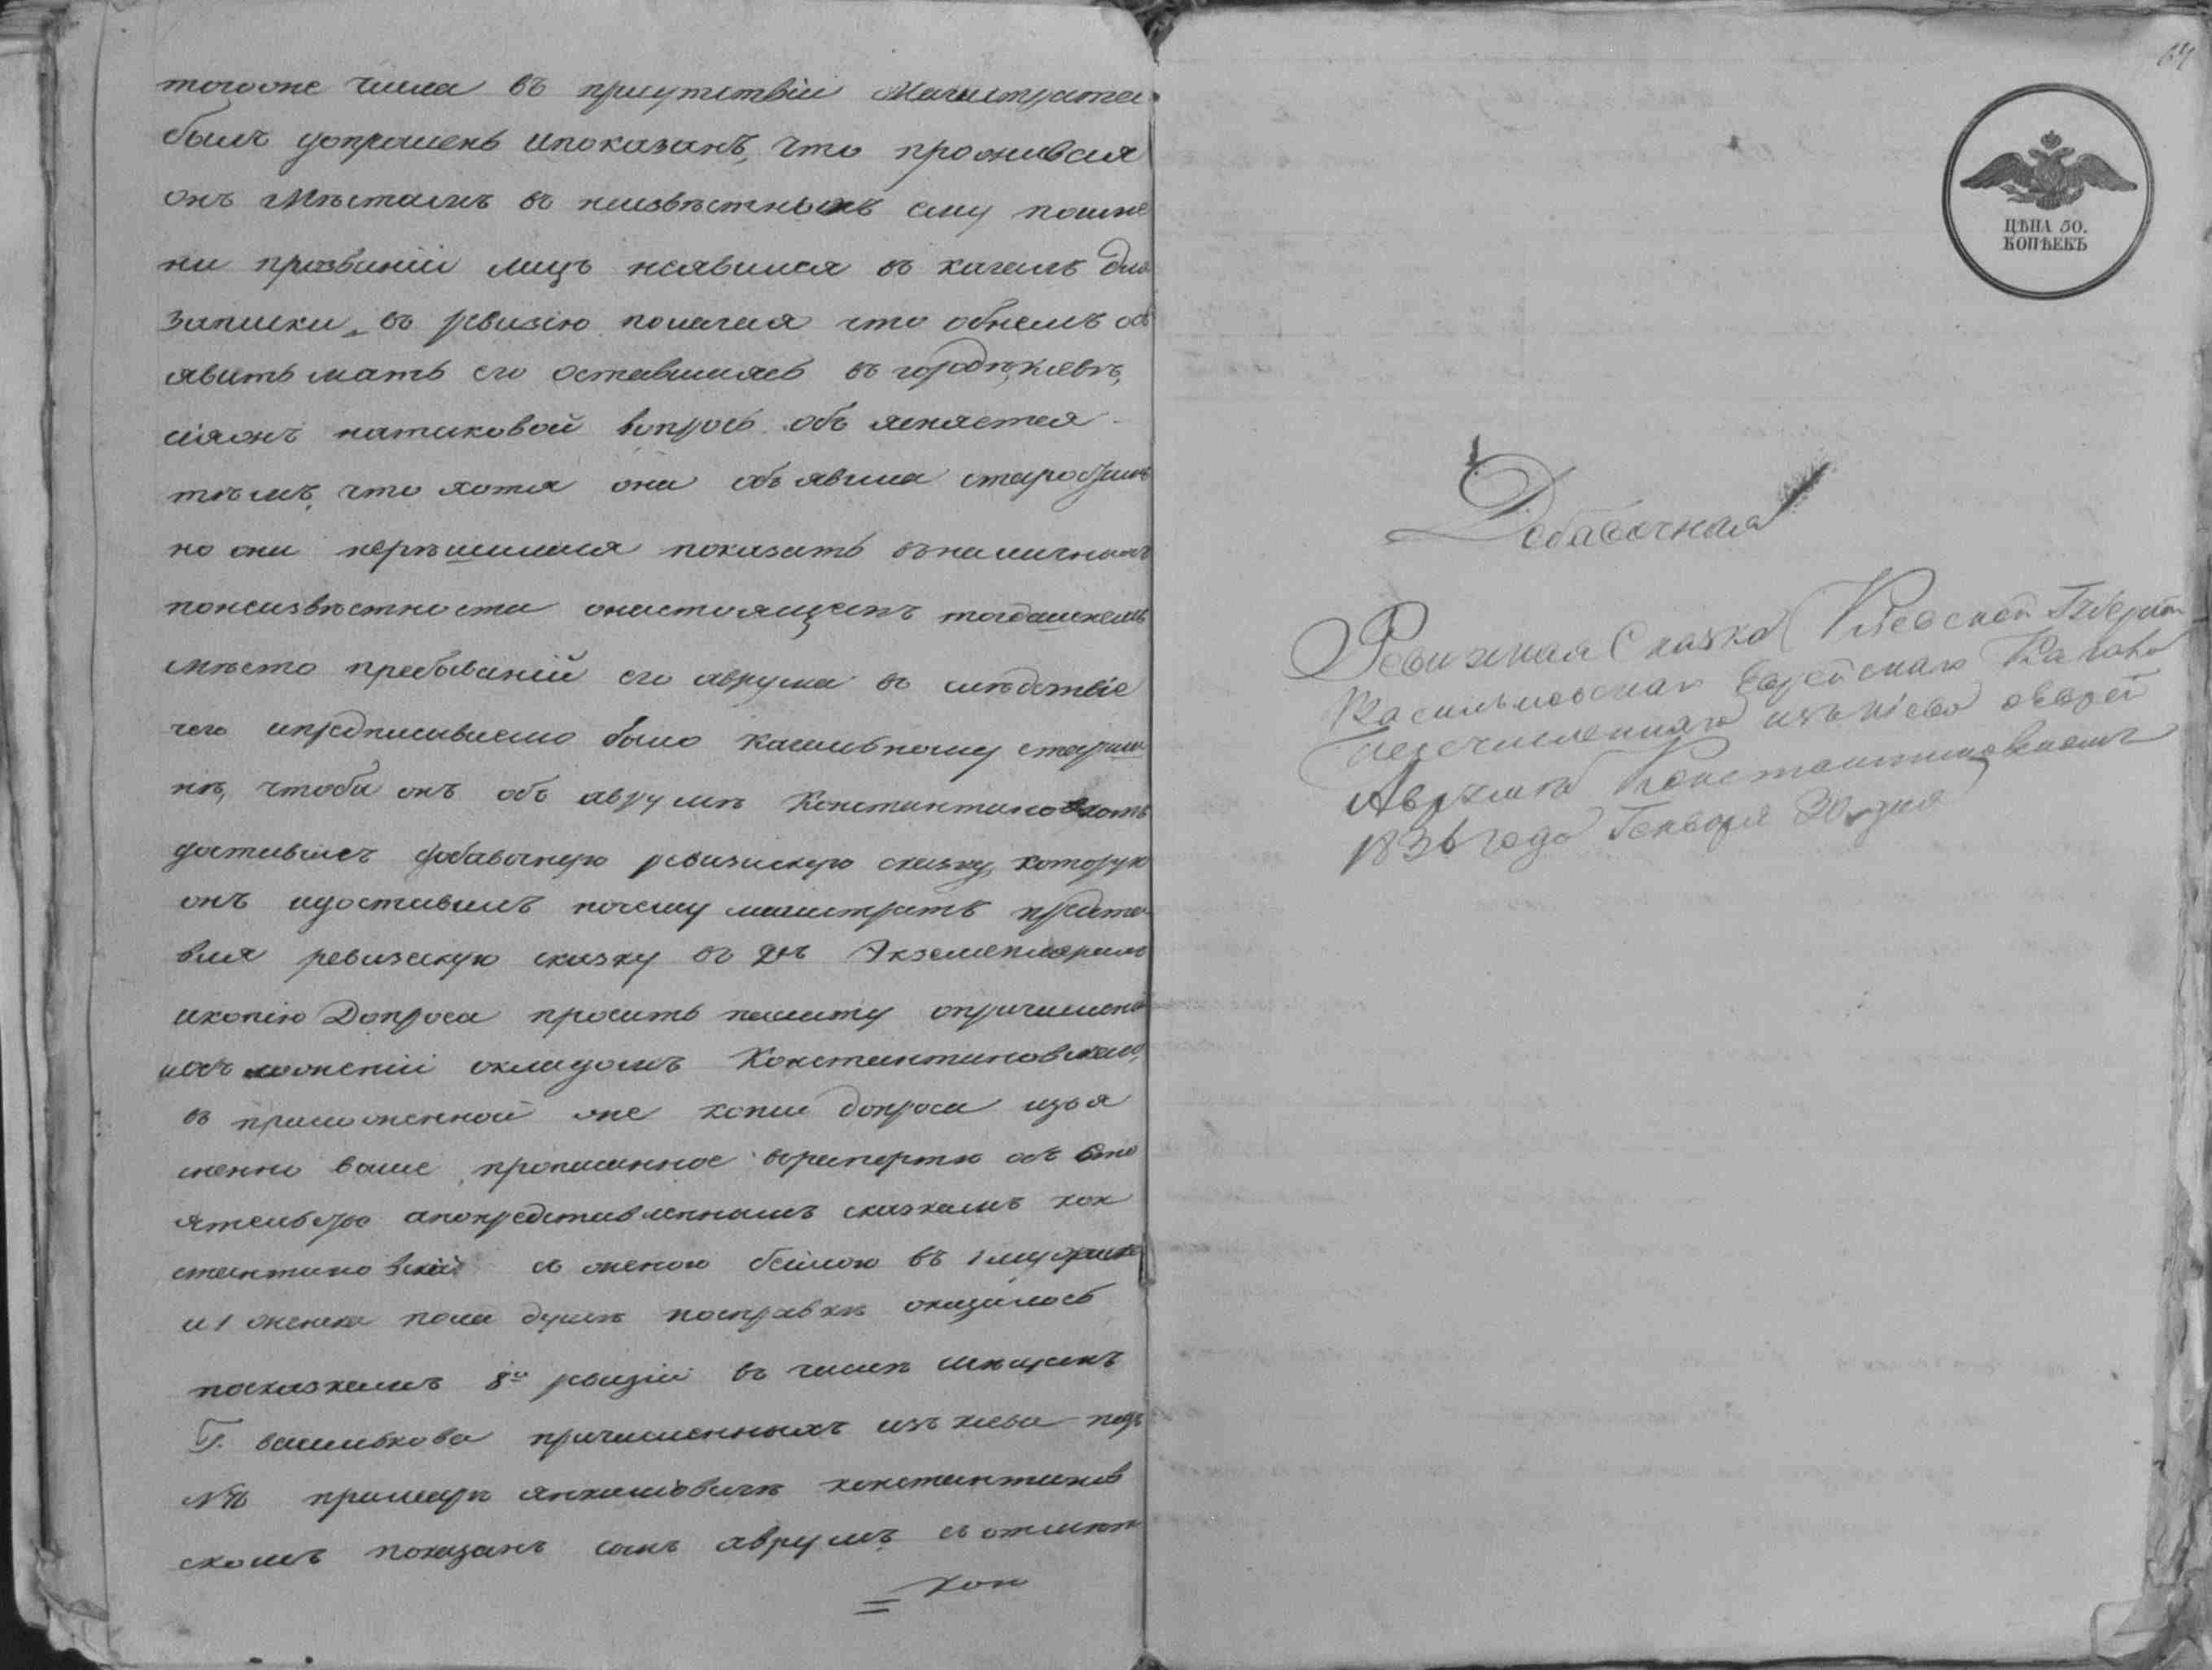 тогоже числа въ присутствіи Магистрата
былъ допрошенъ ипоказалъ, что проживая
онъ Мѣстамъ въ неизвѣстныхъ ему
ни прозваніи лицъ неявился въ кагалъ для
записки въ ревизію полагая что обнемъ объ
явитъ мать его оставшаяся въ городѣ кіевѣ,
натаковой вопросъ объ ясняется
тѣмъ, что хотя она объ явила
но они нерѣшилися показать въналичномъ
понеизвѣстности онастоящемъ тогдашнемъ
мѣсто пребываніи его аврума въ слѣдствіе
чего ипредписываемо было кагальному старши
нѣ, чтобы онъ объ аврумѣ Константиновскомъ
доставилъ добавочную ревизискую сказку, которую
онъ идоставилъ почему магистратъ предста
вляя ревизскую сказку въ двѣ Экземплярахъ
икопію Допроса проситъ палату опричислени
иобъ ложеніи окладомъ Константиновскаго,
въ приложенной же копіи допроса изъя
снено выше прописанное врапортѣ объ сто
ятельство апопредставленнымъ сказкамъ кон
стантиновскій съ женою бейлою въ 1 мужеска
и 1 женска пола душѣ посправкѣ оказалось
посказкамъ 8й ревизіи въ числѣ мѣщанъ
Г. василькова причисленныхъ изъ кіева подъ
№ при янкилѣовичѣ константинов
скомъ показанъ сынъ аврумъ съ отмѣт
кою
ЦѢНА 50.
КОПѢЕКЪ
Добавочная
Ревизкая Сказка Кіевской Губерніи
Васильковскаго Еврейскаго Кагала
перечисленнаго изъ Кіева еврей
Аврумъ Константиновскомъ
1836 года Генваря 30 дня